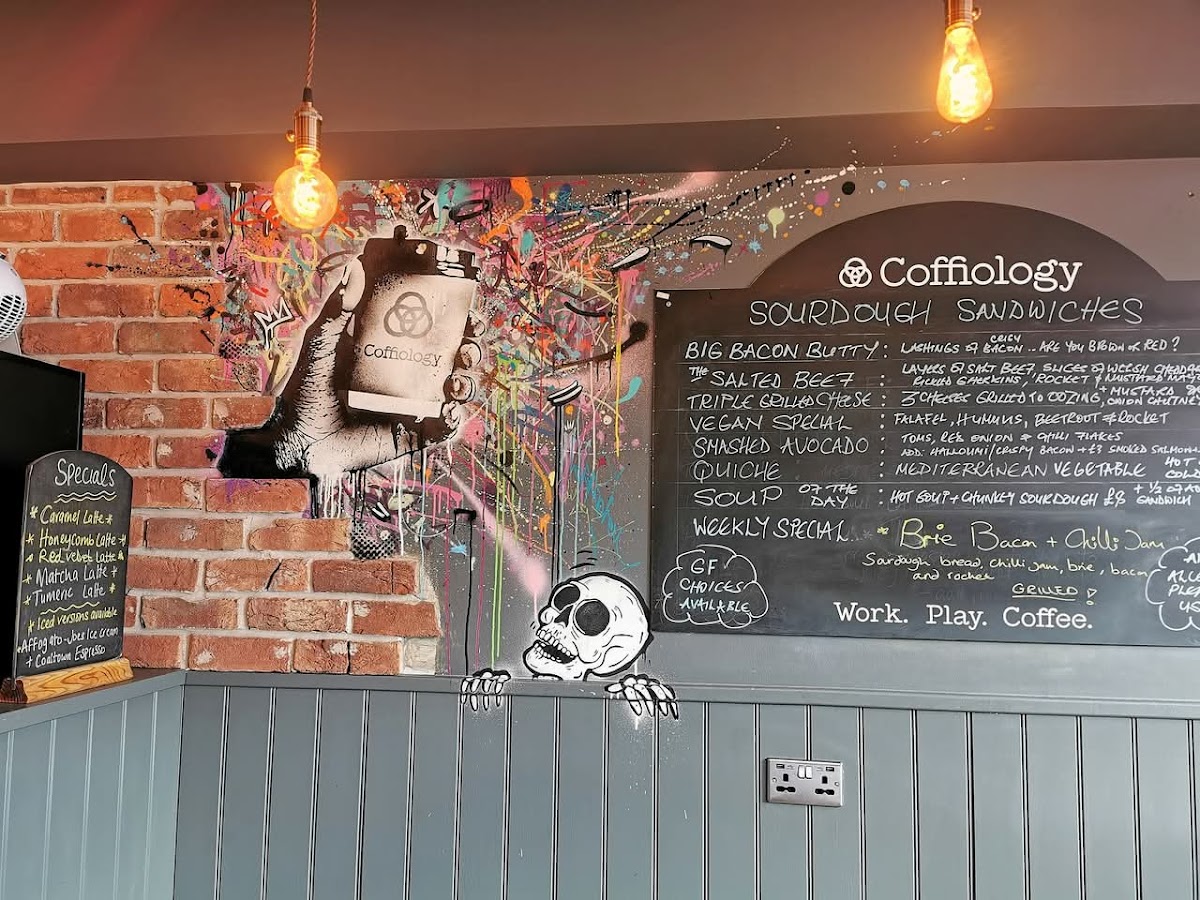 Coffiology
SOURDOUGH SANDWICHES
BIG BACON BUTTY : LASHINGS OF CRISPY BACON .. ARE YOU BROWN OR RED?
THE SALTED BEEF : LAYERS OF SALT BEEF, SLICES OF WELSH CHEDDAR
PICKED GHERKINS, ROCKET & MUSTARD MAYO
TRIPLE GRILLED CHEESE : 3 CHEESE GRILLED TO OOZING, ONION CHUTNEY + MUSTARD
VEGAN SPECIAL : FALAFEL, HUMMUS, BEETROOT & ROCKET
SMASHED AVOCADO : TOMS, RED ONION & CHILLI FLAKES
ADD: HALLOUMI/CRISPY BACON + £3 SMOKED SALMON
QUICHE : MEDITERRANEAN VEGETABLE HOT
SOUP OF THE DAY : HOT SOUP + CHUNKY SOURDOUGH £8 + 1/2 SANDWICH
WEEKLY SPECIAL .. * Brie Bacon + Chilli Jam
Sourdough bread, chilli jam, brie, bacon
and rocket
GRILLED!
GF
CHOICES
AVAILABLE
Work. Play. Coffee.
Coffiology
Specials
* Caramel Latte *
* Honeycomb Latte *
* Red Velvet Latte *
* Matcha Latte *
* Tumeric Latte *
* Iced versions available
* Affogato - Joes Ice Cream
+ Coaltown Espresso